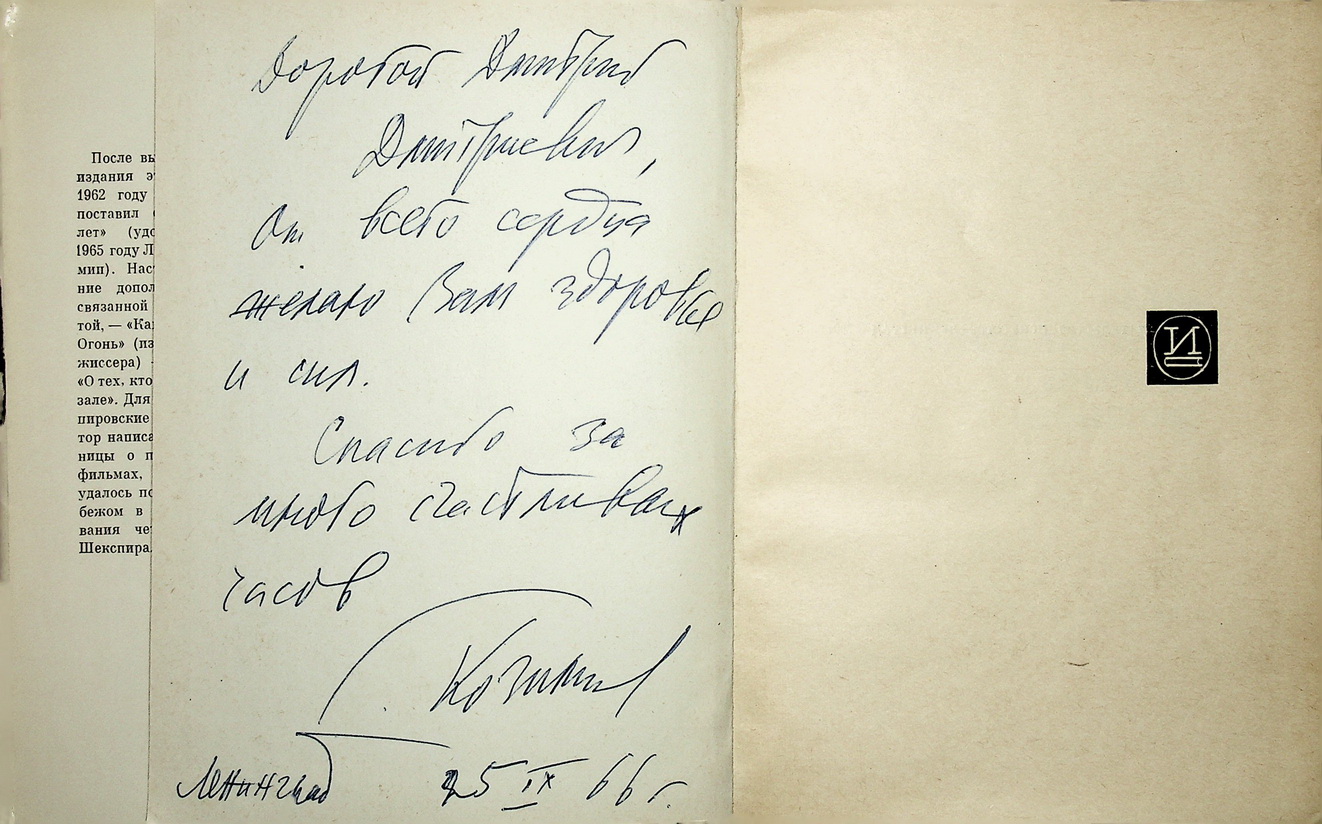 После вы
издания э
1962 году
поставил
лет» (удо
1965 году Л
мип). Нас
ние допол
связанной
той, — «Ка
Огонь» (из
жиссера)
«О тех, кто
зале». Для
пировские
тор написа
ницы о п
фильмах,
удалось по
бежом в
вания че
Шекспира
Дорогой Дмитрий
Дмитриевич,
От всего сердца
желаю Вам здоровья
и сил.
Спасибо за
много счастливых
часов
Г. Козинцев
Ленинград 25 IX 66 г.
И